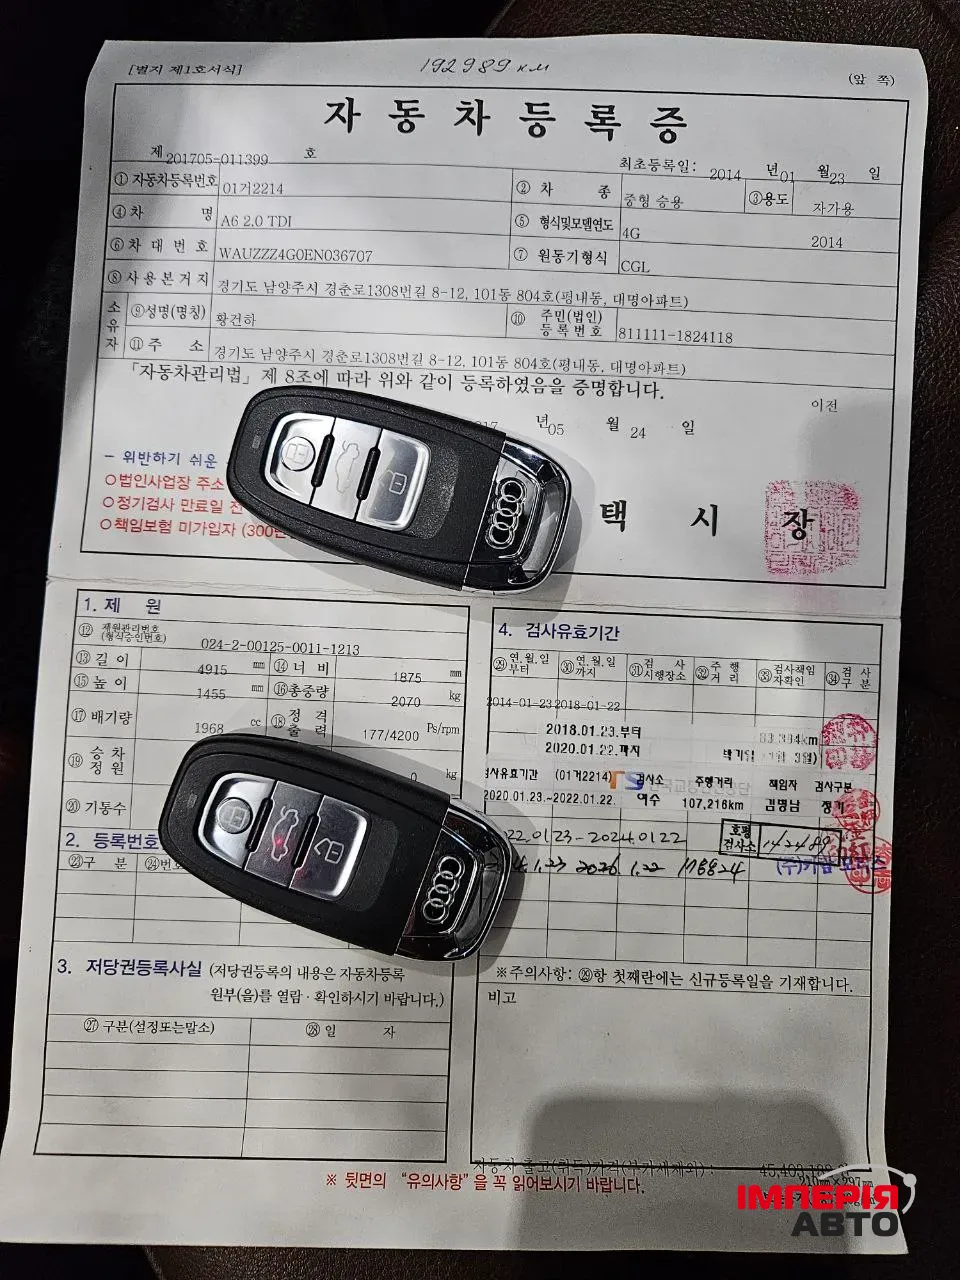 [별지 제1호서식]
192989 км
(앞 쪽)
자동차등록증
제 201705-011399 호
최초등록일: 2014 년 01 월 23 일
① 자동차등록번호 01거2214 ② 차 종 중형 승용 ③ 용도 자가용
④ 차 명 A6 2.0 TDI ⑤ 형식및모델연도 4G 2014
⑥ 차 대 번 호 WAUZZZ4G0EN036707 ⑦ 원동기형식 CGL
⑧ 사 용 본 거 지 경기도 남양주시 경춘로1308번길 8-12, 101동 804호(평내동, 대명아파트)
소유자 ⑨ 성명(명칭) 황건하 ⑩ 주민(법인)등록번호 811111-1824118
⑪ 주 소 경기도 남양주시 경춘로1308번길 8-12, 101동 804호(평내동, 대명아파트)
「자동차관리법」 제 8조에 따라 위와 같이 등록하였음을 증명합니다.
이전
17 년 05 월 24 일
- 위반하기 쉬운
○법인사업장 주소
○정기검사 만료일 전
○책임보험 미가입자 (300만
택 시 장
1. 제 원
⑫ 제원관리번호 (형식승인번호) 024-2-00125-0011-1213
⑬ 길 이 4915 mm ⑭ 너 비 1875 mm
⑮ 높 이 1455 mm ⑯ 총중량 2070 kg
⑰ 배기량 1968 cc ⑱ 정격출력 177/4200 Ps/rpm
⑲ 승차정원 0 kg
⑳ 기통수
2. 등록번호
㉓ 구 분 ㉔ 번호
3. 저당권등록사실 (저당권등록의 내용은 자동차등록
원부(을)를 열람 · 확인하시기 바랍니다.)
㉗ 구분(설정또는말소) ㉘ 일 자
4. 검사유효기간
㉙ 연.월.일부터 ㉚ 연.월.일까지 ㉛ 검사시행장소 ㉜ 주행거리 ㉝ 검사책임자확인 ㉞ 검사구분
2014-01-23 2018-01-22
2018.01.23.부터 83,384km
2020.01.22.까지
검사유효기간 (01거2214) TS 검사소 주행거리 책임자 검사구분
2020.01.23.~2022.01.22. 여수 107,216km 김명남 정기
22.01.23-2024.01.22 호평검사소 142489
1.23 2026. 1.22 178824
※주의사항: ㉙항 첫째란에는 신규등록일을 기재합니다.
비고
자동차 출고(취득)가격(부가세제외) : 45,403,1
210㎜×297㎜
※ 뒷면의 "유의사항"을 꼭 읽어보시기 바랍니다.
ІМПЕРІЯ
АВТО